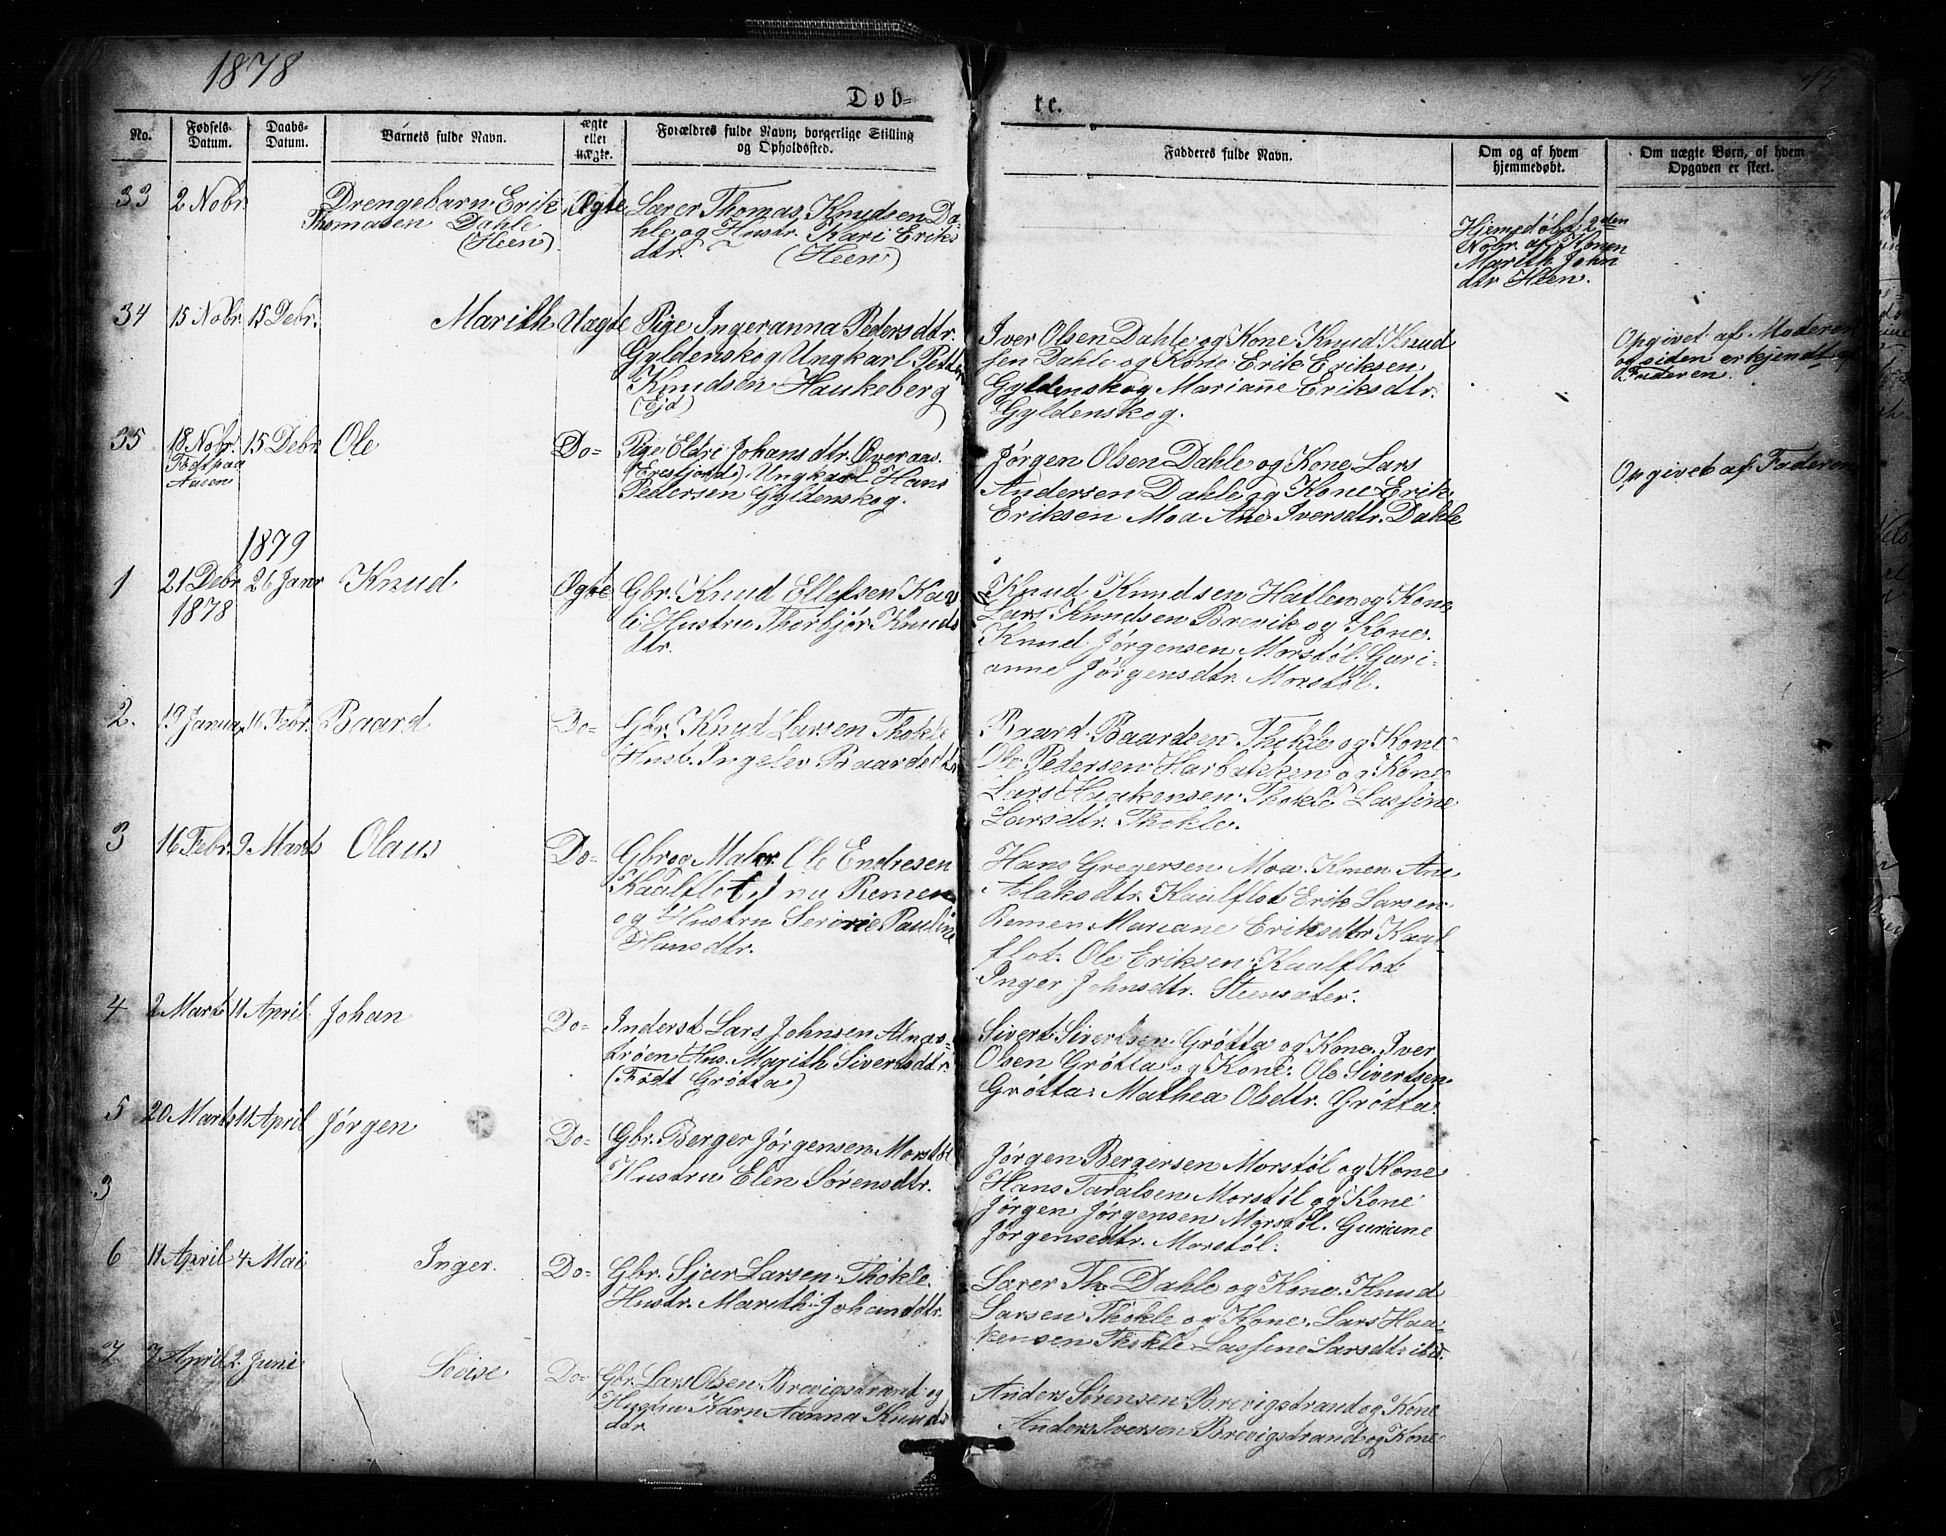 1878
75
Døb=
te.
No.
Fødsels-
Datum.
Daabs-
Datum.
Barnets fulde Navn.
ægte
eller
uægte.
Forældres fulde Navn; borgerlige Stilling
og Opholdssted.
Fadderes fulde Navn.
Om og af hvem
hjemmedøbt.
Om uægte Børn, af hvem
Opgaven er skeet.
33
2 Nobr.
Drengebarn Erik
Thomasen Dahle
(Heen)
Ægte
Lærer Thomas Knudsen Da-
hle og Hustr. Kari Eriks
dtr. (Heen)
Hjemedøbt 2den
Nobr. af Konen
Marith John
dtr Heen.
34
15 Nobr.
15 Debr.
Marith
Uægte
Pige Ingeranna Pedersdtr.
Gyldenskog Ungkarl Petter
Knudsen Haukeberg
(Ejd)
Iver Olsen Dahle og Kone Knud Knud
sen Dahle og Kone Erik Eriksen
Gyldenskog Mariane Eriksdtr.
Gyldenskog.
Opgivet af Moderen
og siden erkjendt af
Faderen.
35
18 Nobr.
Født paa
Aasen
15 Debr.
Ole
Do=
Pige Eldri Johansdtr. Øveraas.
(Eresfjord) Ungkarl Hans
Pedersen Gyldenskog.
Jørgen Olsen Dahle og Kone Lars
Andersen Dahle og Kone Erik
Eriksen Moa Ane Iversdtr. Dahle
Opgivet af Faderen
1879
1
21 Debr.
1878
26 Janr
Knud
Ægte
Gbr. Knud Ellefsen Kav
li Hustru Thorbjør Knuds
dtr.
Knud Knudsen Hatlem og Kone
Lars Knudsen Brevik og Kone.
Knud Jørgensen Morstøl. Guri-
anne Jørgensdtr. Morstøl.
2.
13 Janua.
16 Febr.
Baard
Do=
Gbr. Knud Larsen Thokle
Hust. Ingelev Baardsdtr
Baard Baardsen Thokle og Kone
Ole Pedersen Harbakken og Kone
Lars Haakensen Thokle Lassine
Larsdtr. Thokle.
3
16 Febr.
9 Marts
Olaus
Do=
Gbr og Maler Ole Endresen
Kaalflot, nu Remen
og Hustru Serine Pauline
Hansdtr.
Hans Gregersen Moa. Konen Ane
Aslaksdtr. Kaalflot Erik Larsen
Remen Mariane Eriksdtr Kaal
flot. Ole Eriksen Kaalflot
Inger Johnsdtr. Steensæter.
4
2 Marts
11 April
Johan
Do=
Inderst Lars Johnsen Alnæs-
trøen Hus. Marith Sivertsdtr.
(Født Grøtta)
Sivert Sivertsen Grøtta og Kone. Iver
Olsen Grøtta og Kone: Ole Sivertsen
Grøtta. Mathea Olsdtr. Grøtta
5
20 Marts
11 April
Jørgen
Do=
Gbr. Berger Jørgensen Morstøl
Hustru Elen Sørensdtr.
Jørgen Bergersen Morstøl og Kone
Hans Taralsen Morstøl og Kone
Jørgen Jørgensen Morstøl. Guriane
Jørgensdtr. Morstøl.
3
6
11 April
4 Mai
Inger.
Do=
Gbr. Sjur Larsen Thokle.
Hustr. Marith Johansdtr.
Lærer Th. Dahle og Kone. Knud
Larsen Thokle og Kone. Lars Haa-
kensen Thokle Lassine Larsdtr ibd.
7
7 April
2. Juni
Lovise
Do=
Gbr. Lars Olsen Brevigstrand og
Hustru Karn Aanna Knuds
dtr
Anders Sørensen Brevigstrand og Kone
Anders Iversen Brevigstrand og Kone